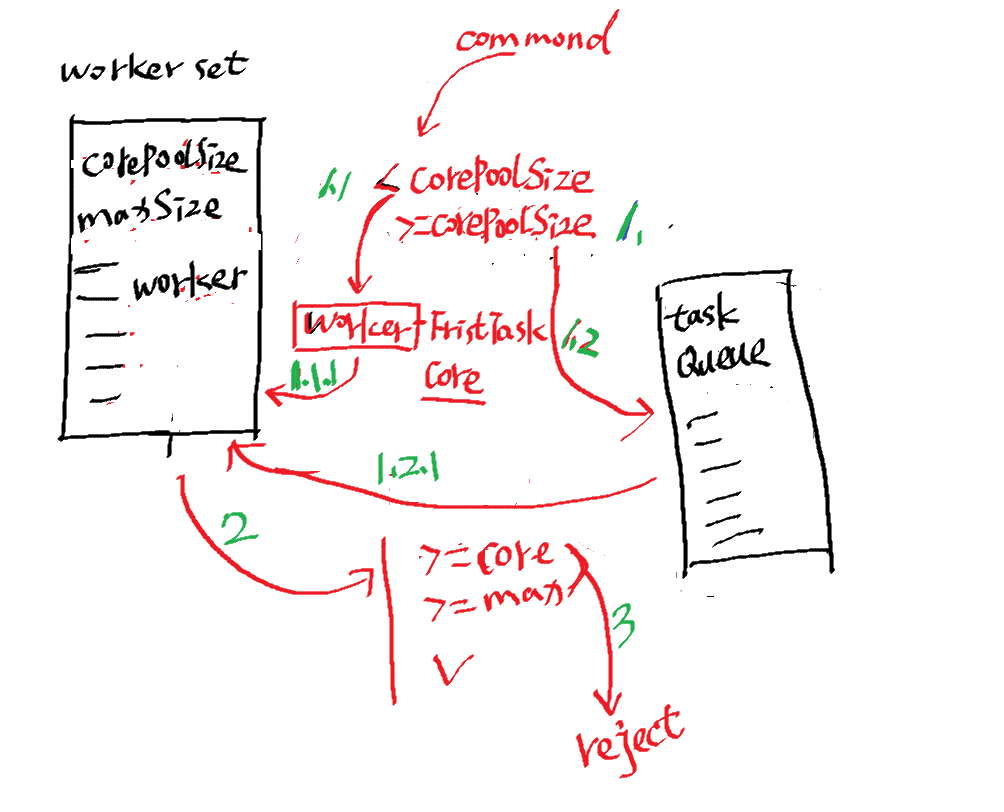 commond
worker set
corePoolSize
maxSize
worker
1.1
< CorePoolSize
>=corePoolSize
1.
Worker-FristTask
Core
1.1.1
1.2
task
Queue
1.2.1
2
>=Core
>=max
3
reject